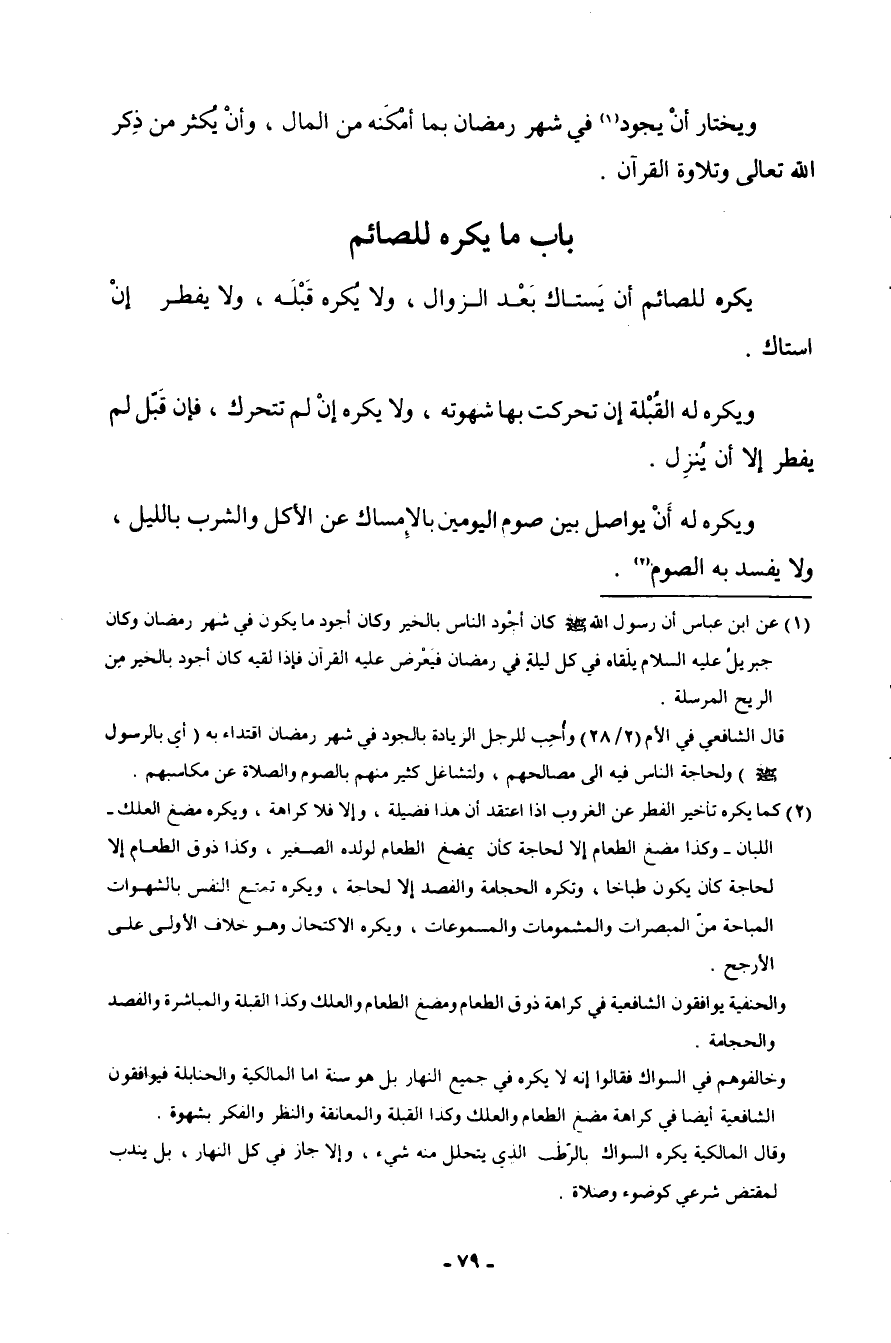 ويختار أنْ يجود(١) في شهر رمضان بما أمْكَنه من المال ، وأنْ يُكثر من ذِكر
الله تعالى وتلاوة القرآن .
باب ما يكره للصائم
يكره للصائم أن يَستاك بَعْد الزوال ، ولا يُكره قَبْلَه ، ولا يفطر إنْ
استاك .
ويكره له القُبْلة إن تحركت بها شهوته ، ولا يكره إنْ لم تتحرك ، فإن قَبّل لم
يفطر إلا أن يُنزِل .
ويكره له أَنْ يواصل بين صوم اليومين بالإِمساك عن الأكل والشرب بالليل ،
ولا يفسد به الصوم(٢) .
(١) عن ابن عباس أن رسول الله ﷺ كان أجْود الناس بالخير وكان أجود ما يكون في شهر رمضان وكان
جبريلُ عليه السلام يلْقاه في كل ليلةٍ في رمضان فيَعْرض عليه القرآن فإذا لقيه كان أجود بالخير مِن
الريح المرسلة .
قال الشافعي في الأم (٢/ ٢٨) وأُحِب للرجل الزيادة بالجود في شهر رمضان اقتداء به ( أي بالرسول
ﷺ ) ولحاجة الناس فيه الى مصالحهم ، ولتشاغل كثير منهم بالصوم والصلاة عن مكاسبهم .
(٢) كما يكره تأخير الفطر عن الغروب اذا اعتقد أن هذا فضيلة ، وإلا فلا كراهة ، ويكره مضغ العلك ـ
اللبان ـ وكذا مضغ الطعام إلا لحاجة كأن يمضغ الطعام لولده الصغير ، وكذا ذوق الطعام إلا
لحاجة كأن يكون طباخا ، وتكره الحجامة والفصد إلا لحاجة ، ويكره تمتع النفس بالشهوات
المباحة منّ المبصرات والمشمومات والمسموعات ، ويكره الاكتحال وهو خلاف الأولى على
الأرجح .
والحنفية يوافقون الشافعية في كراهة ذوق الطعام ومضغ الطعام والعلك وكذا القبلة والمباشرة والفصد
والحجامة .
وخالفوهم في السواك فقالوا إنه لا يكره في جميع النهار بل هو سنة اما المالكية والحنابلة فيوافقون
الشافعية أيضا في كراهة مضغ الطعام والعلك وكذا القبلة والمعانقة والنظر والفكر بشهوة .
وقال المالكية يكره السواك بالرّطب الذي يتحلل منه شيء ، وإلا جاز في كل النهار ، بل يندب
لمقتض شرعي كوضوء وصلاة .
- ٧٩ -